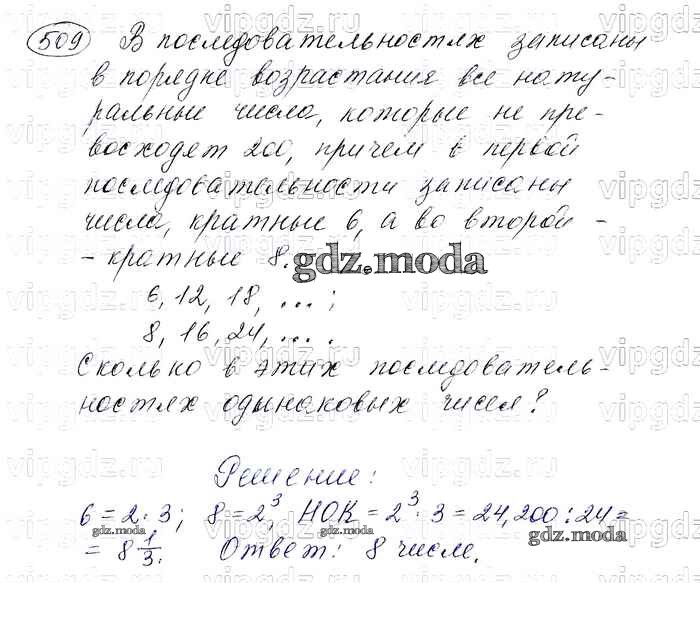 509 В последовательностях записаны
в порядке возрастания все нату-
ральные числа, которые не пре-
восходят 200, причем в первой
последовательности записаны
числа, кратные 6, а во второй -
- кратные 8.
gdz.moda
6, 12, 18, ...;
8, 16, 24, ... .
Сколько в этих последователь-
ностях одинаковых чисел?
Решение:
6 = 2 · 3; 8 = 2³, НОК = 2³ · 3 = 24, 200 : 24 =
gdz.moda gdz.moda gdz.moda
= 8 1/3. Ответ: 8 чисел.
vipgdz.ru